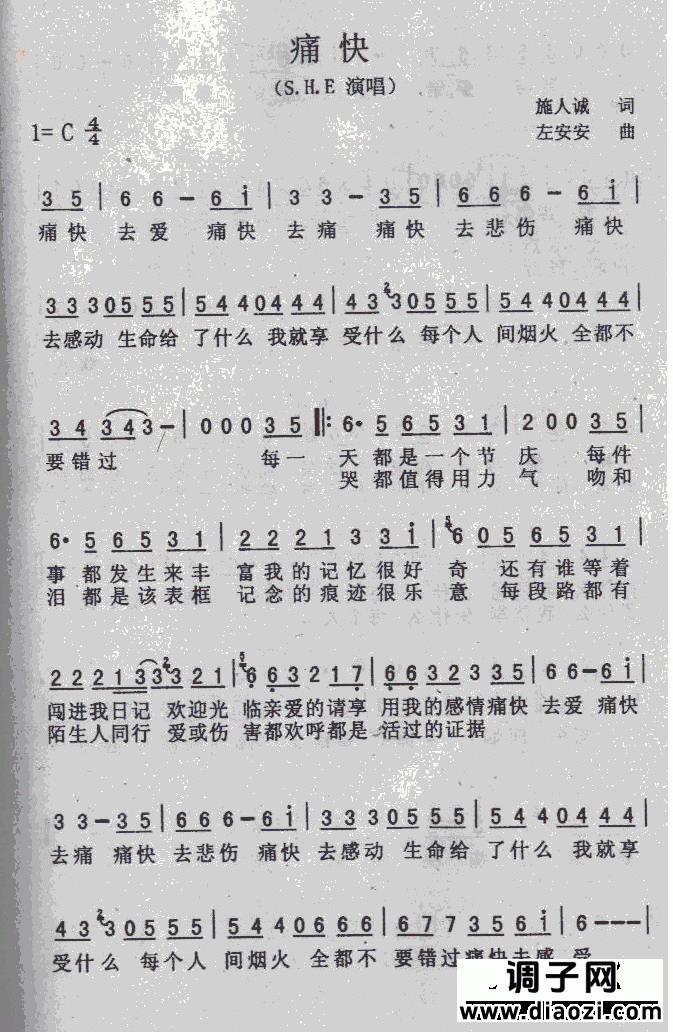 痛快
(S.H.E 演唱)
施人诚 词
1=C 4/4
左安安 曲
3 5 | 6 6 - 6 i | 3 3 - 3 5 | 6 6 6 - 6 i |
痛快 去爱 痛快 去痛 痛快 去悲伤 痛快
3 3 3 0 5 5 5 | 5 4 4 0 4 4 4 | 4 3 2 3 0 5 5 5 | 5 4 4 0 4 4 4 |
去感动 生命给 了什么 我就享 受什么 每个人 间烟火 全都不
3 4 3 4 3 - | 0 0 0 3 5 ‖: 6· 5 6 5 3 1 | 2 0 0 3 5 |
要错过 每一 天都是一个节 庆 每件
哭都值得用力 气 吻和
6· 5 6 5 3 1 | 2 2 2 1 3 3 i | 5 6 0 5 6 5 3 1 |
事都发生来丰 富我的记忆很好 奇 还有谁等着
泪都是该表框 记念的痕迹很乐 意 每段路都有
2 2 2 1 3 3 2 3 2 1 | 5 6 6 3 2 1 7 | 6 6 3 2 3 3 5 | 6 6 - 6 i |
闯进我日记 欢迎光 临亲爱的请享 用我的感情痛快 去爱 痛快
陌生人同行 爱或伤 害都欢呼都是 活过的证据
3 3 - 3 5 | 6 6 6 - 6 i | 3 3 3 0 5 5 5 | 5 4 4 0 4 4 4 |
去痛 痛快 去悲伤 痛快 去感动 生命给 了什么 我就享
4 3 2 3 0 5 5 5 | 5 4 4 0 6 6 6 | 6 7 7 3 5 6 i | 6 - - -
受什么 每个人 间烟火 全都不 要错过痛快去感 受
调子网
www.diaozi.com